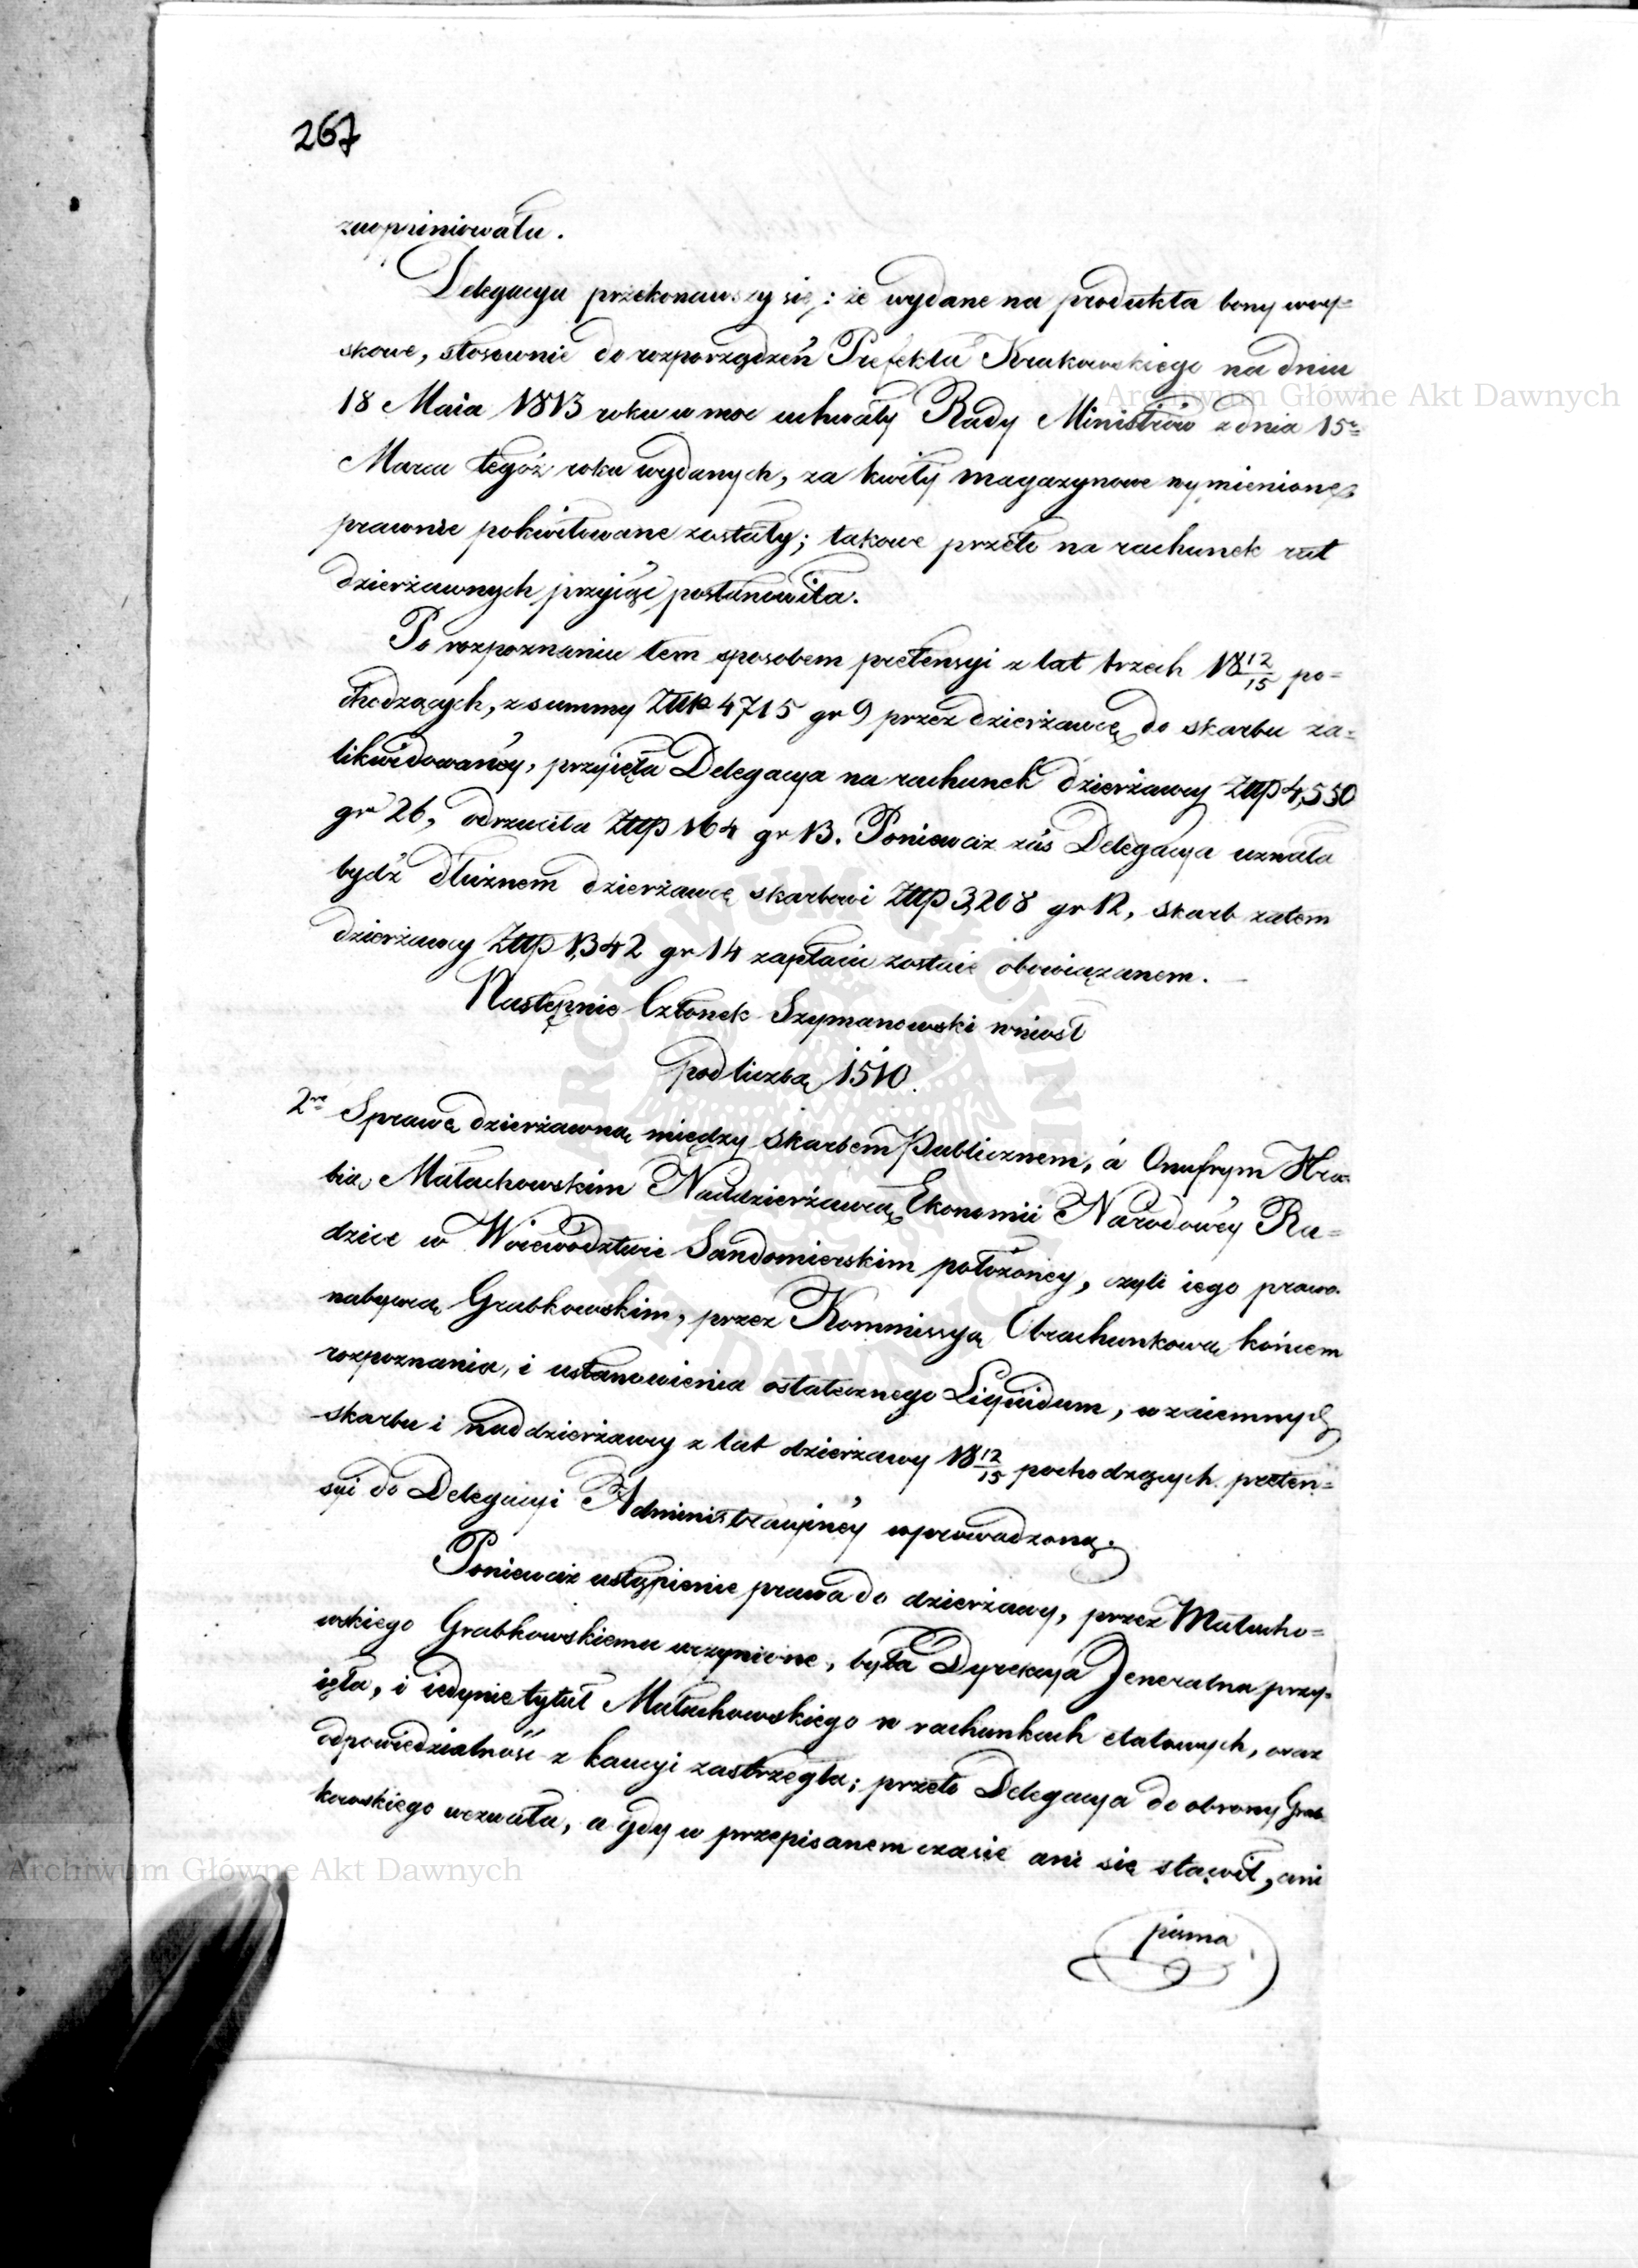 267
zaopiniowała.
Delegacya przekonawszy się; że wydane na produkta bony woy=
skowe, stosownie do rozporządzeń Prefekta Krakowskiego na dniu
18 Maia 1813 roku w moc uchwały Rady Ministrów z dnia 15º
Marca tegóż roku wydanych, za kwity magazynowe wymienione
prawnie pokwitowane zostały; takowe przeto na rachunek rat
dzierżawnych przyiąć postanowiła.
Po rozpoznaniu tem sposobem pretensyi z lat trzech 18 12/15 po=
chodzących, z summy Złłp 4715 gr 9 przez dzierżawcę do skarbu za=
likwidowanéy, przyięła Delegacya na rachunek dzierżawcy Złłp 4,550
gr 26, odrzuciła Złłp 164 gr 13. Poniewáż zaś Delegacya uznała
bydź dłużnem dzierżawcę skarbowi Złłp 3,208 gr 12, skarb zatem
dzierżawcy Złłp 1,342 gr 14 zapłacić zostaie obowiązanem. —
Następnie Członek Szymanowski wniosł
pod liczbą 1510.
2re Sprawę dzierżawną między Skarbem Publicznem, á Onufrym Hra=
bią Małachowskim Naddzierżawcą Ekonomii Narodowéy Ra=
dzice w Woiewództwie Sandomierskim położonéy, czyli iego prawo=
nabywcą Grabkowskim, przez Kommissyą Obrachunkową końcem
rozpoznania, i ustanowienia ostatecznego Liquidum, wzaiemnych
skarbu i naddzierżawcy z lat dzierżawy 18 12/15 pochodzących preten=
syi do Delegacyi Administracyinéy wprowadzoną.
Poniewáż ustąpienie prawa do dzierżawy, przez Małacho=
wskiego Grabkowskiemu uczynione, była Dyrekcya Jeneralna przy=
ięła, i iedynie tytuł Małachowskiego w rachunkach etatowych, oraz
odpowiedzialność z kaucyi zastrzegła; przeto Delegacya do obrony Grab=
kowskiego wezwała, a gdy w przepisanem czasie ani się stawił, ani
pisma
Archiwum Główne Akt Dawnych
Archiwum Główne Akt Dawnych
ARCHIWUM GŁÓWNE AKT DAWNYCH